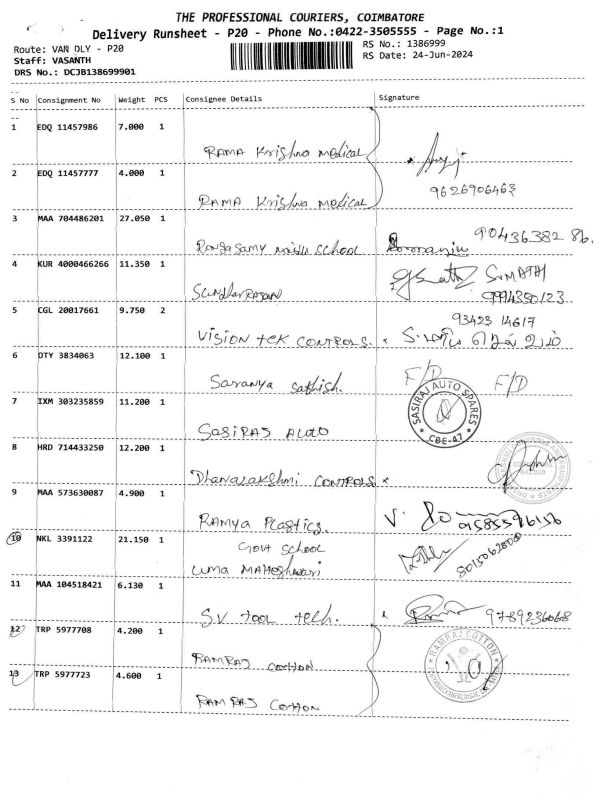 THE PROFESSIONAL COURIERS, COIMBATORE
Delivery Runsheet - P20 - Phone No.:0422-3505555 - Page No.:1
Route: VAN DLY - P20
RS No.: 1386999
Staff: VASANTH
RS Date: 24-Jun-2024
DRS No.: DCJB138699901
S No Consignment No Weight PCS Consignee Details Signature
1 EDQ 11457986 7.000 1
RAMA Krishna Medical
2 EDQ 11457777 4.000 1
9626906463
RAMA Krishna Medical
3 MAA 704486201 27.050 1
90436382 86.
Rangasamy Naidu School
4 KUR 4000466266 11.350 1
SUMATHI
Sundarrajan
9994350123
5 CGL 20017661 9.750 2
93423 14617
VISION tek CONTROLS.
6 OTY 3834063 12.100 1
F/D F/D
Saranya Sathish.
7 IXM 303235859 11.200 1
SASIRAJ AUTO SPARES
CBE-47
SASIRAJ Auto
8 HRD 714433250 12.200 1
Dhanalakshmi CONTROLS
9 MAA 573630087 4.900 1
RAMya Plastics.
9585596156
10 NKL 3391122 21.150 1
Govt School
Uma MAHeshwari
8015062800
11 MAA 104518421 6.130 1
S.V tool tech.
9789236068
12 TRP 5977708 4.200 1
RAMRAJ COTTON
RAMRAJ Cotton
13 TRP 5977723 4.600 1
RAMRAJ Cotton